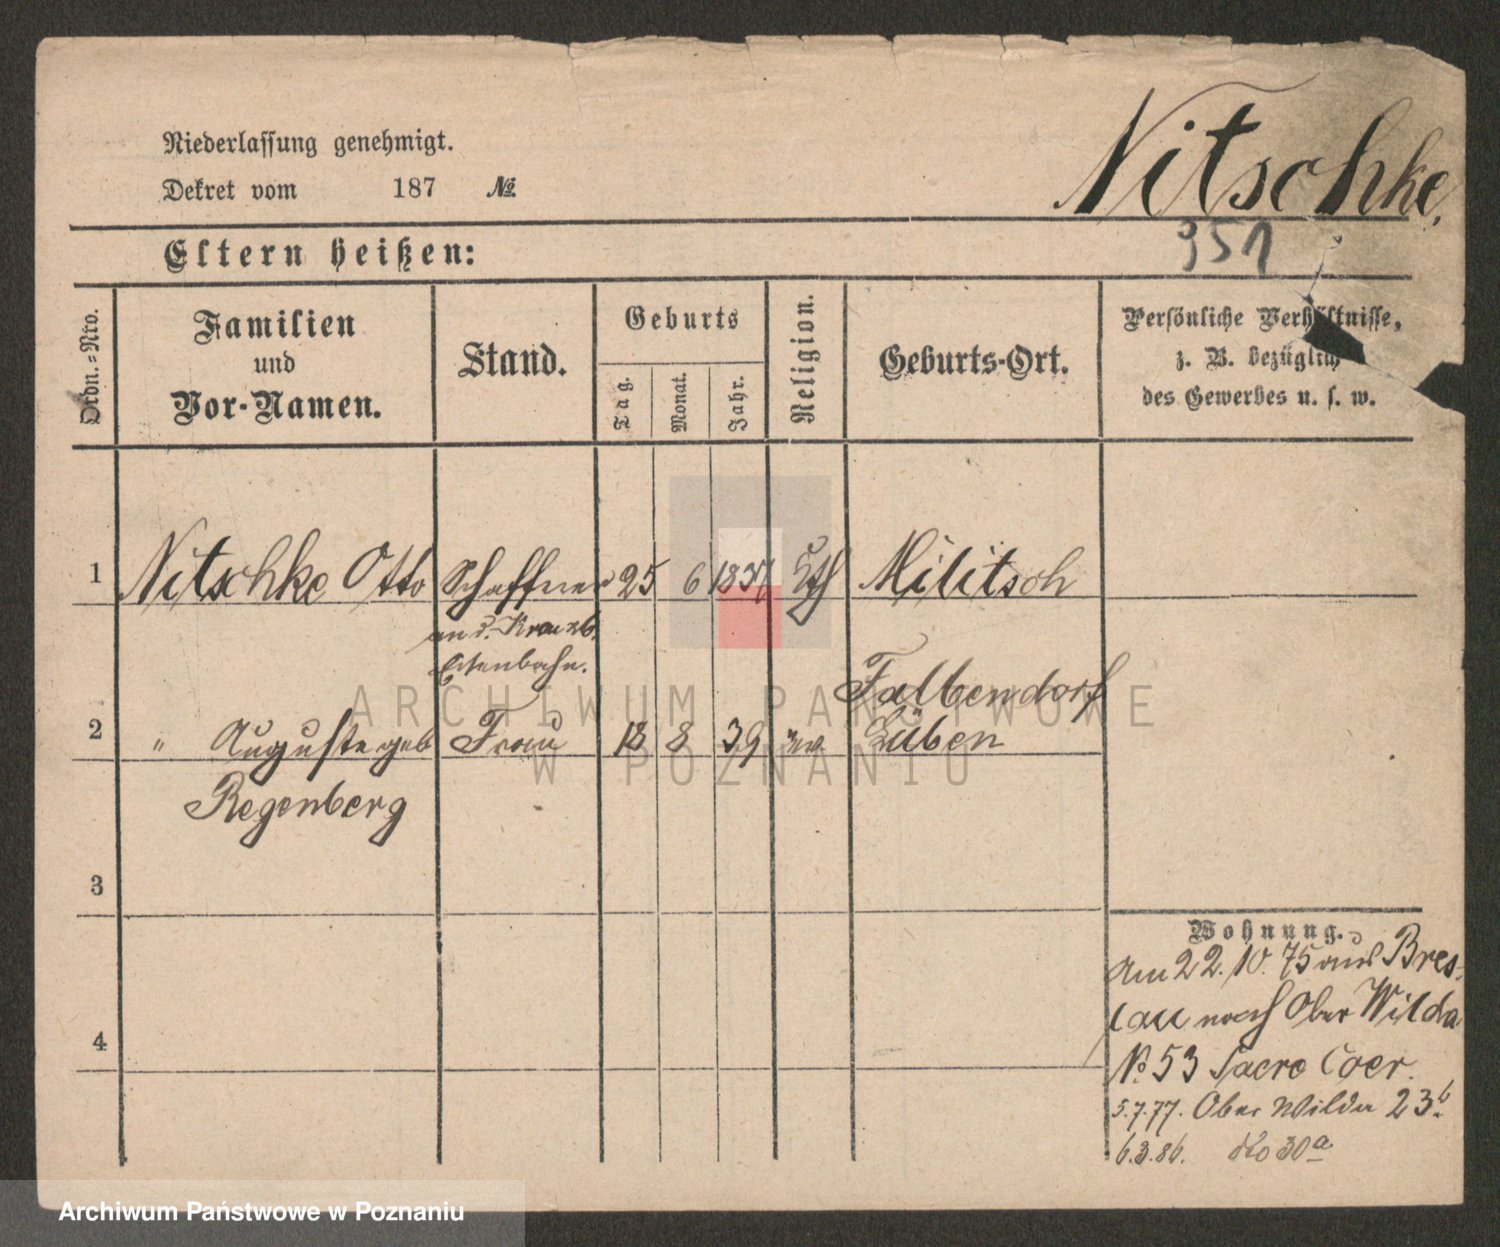 Niederlassung genehmigt.
Dekret vom 187 №
Nitschke,
951
Eltern heißen:
Ordn.-Nro.
Familien
und
Vor-Namen.
Stand.
Geburts
Tag.
Monat.
Jahr.
Religion.
Geburts-Ort.
Persönliche Verhältnisse,
z. B. bezüglich
des Gewerbes u. s. w.
1 Nitschke Otto Schaffner 25 6 1837 Militsch
an d. Kreuzb.
Eisenbahn.
Falbendorf
2 " Auguste geb Frau 18 8 39 Lüben
Regenberg
3
4
Wohnung.
Am 22. 10. 75 aus Bres-
lau nach Ober Wilda
№ 53 Sacre Coer.
5.7.77. Ober Wilda 23b.
6.3.86. do 30a
ARCHIWUM PAŃSTWOWE
W POZNANIU
Archiwum Państwowe w Poznaniu